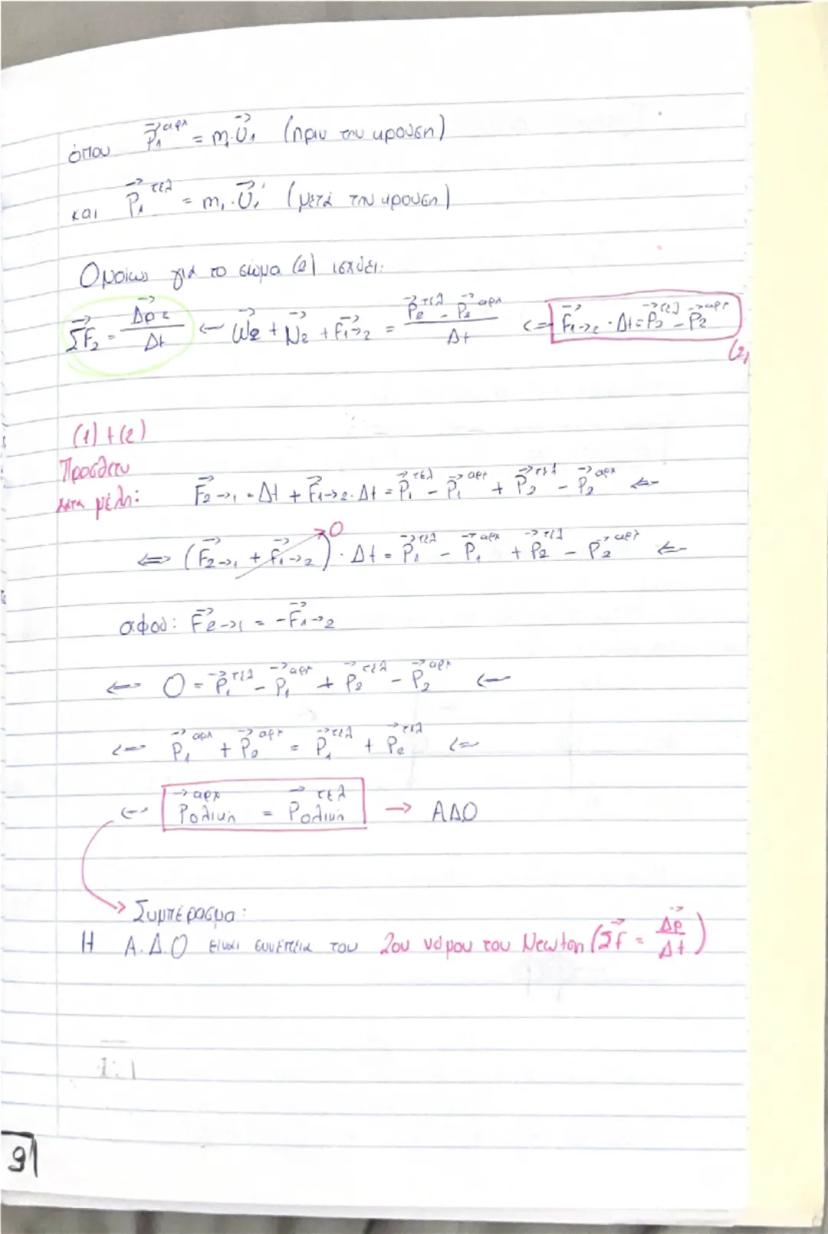 όπου P⃗₁^αρχ = m₁·U⃗₁ (πριν την κρουση)
και P⃗₁^τελ = m₁·U⃗₁' (μετά την κρουση)
Ομοίως για το σώμα (2) ισχύει:
ΣF⃗₂ = Δp⃗₂/Δt ⇐ W⃗₂ + N⃗₂ + F⃗₁→₂ = (P⃗₂^τελ - P⃗₂^αρχ)/Δt ⇐ F⃗₁→₂ · Δt = P⃗₂^τελ - P⃗₂^αρχ (2)
(1)+(2)
Προσθετω
κατα μέλη: F⃗₂→₁ · Δt + F⃗₁→₂ · Δt = P⃗₁^τελ - P⃗₁^αρχ + P⃗₂^τελ - P⃗₂^αρχ ⇐
⇔ (F⃗₂→₁ + F⃗₁→₂)→0 · Δt = P⃗₁^τελ - P⃗₁^αρχ + P⃗₂^τελ - P⃗₂^αρχ ⇐
αφού: F⃗₂→₁ = -F⃗₁→₂
⇐ 0 = P⃗₁^τελ - P⃗₁^αρχ + P⃗₂^τελ - P⃗₂^αρχ ⇐
⇐ P⃗₁^αρχ + P⃗₂^αρχ = P⃗₁^τελ + P⃗₂^τελ ⇐
⇐ P⃗ολικη^αρχ = P⃗ολικη^τελ → ΑΔΟ
→ Συμπέρασμα:
Η Α.Δ.Ο είναι συνέπεια του 2ου νόμου του Newton (ΣF⃗ = Δp⃗/Δt)